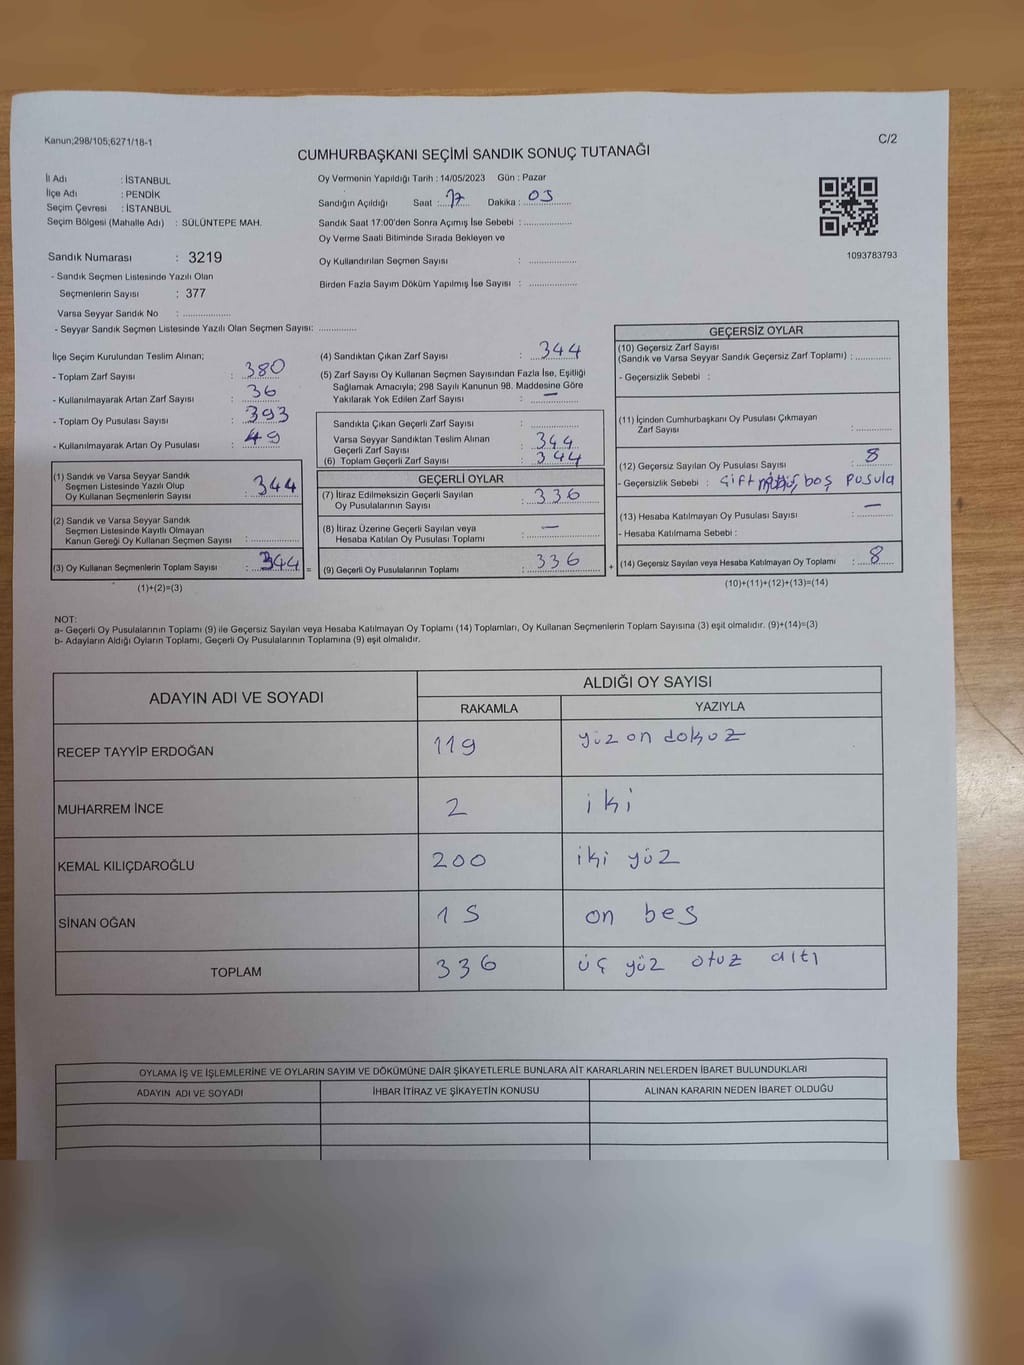 Kanun;298/105;6271/18-1
C/2
CUMHURBAŞKANI SEÇİMİ SANDIK SONUÇ TUTANAĞI
İl Adı : İSTANBUL
İlçe Adı : PENDİK
Seçim Çevresi : İSTANBUL
Seçim Bölgesi (Mahalle Adı) : SÜLÜNTEPE MAH.
Oy Vermenin Yapıldığı Tarih : 14/05/2023 Gün : Pazar
Sandığın Açıldığı Saat : 17 Dakika : 05
Sandık Saat 17:00'den Sonra Açımış İse Sebebi :
Oy Verme Saati Bitiminde Sırada Bekleyen ve
Oy Kullandırılan Seçmen Sayısı :
Birden Fazla Sayım Döküm Yapılmış İse Sayısı :
1093783793
Sandık Numarası : 3219
- Sandık Seçmen Listesinde Yazılı Olan
Seçmenlerin Sayısı : 377
Varsa Seyyar Sandık No :
- Seyyar Sandık Seçmen Listesinde Yazılı Olan Seçmen Sayısı:
İlçe Seçim Kurulundan Teslim Alınan;
- Toplam Zarf Sayısı : 380
- Kullanılmayarak Artan Zarf Sayısı : 36
- Toplam Oy Pusulası Sayısı : 393
- Kullanılmayarak Artan Oy Pusulası : 49
(1) Sandık ve Varsa Seyyar Sandık
Seçmen Listesinde Yazılı Olup
Oy Kullanan Seçmenlerin Sayısı : 344
(2) Sandık ve Varsa Seyyar Sandık
Seçmen Listesinde Kayıtlı Olmayan
Kanun Gereği Oy Kullanan Seçmen Sayısı :
(3) Oy Kullanan Seçmenlerin Toplam Sayısı : 344 =
(1)+(2)=(3)
(4) Sandıktan Çıkan Zarf Sayısı : 344
(5) Zarf Sayısı Oy Kullanan Seçmen Sayısından Fazla İse, Eşitliği
Sağlamak Amacıyla; 298 Sayılı Kanunun 98. Maddesine Göre
Yakılarak Yok Edilen Zarf Sayısı : —
Sandıkla Çıkan Geçerli Zarf Sayısı :
Varsa Seyyar Sandıktan Teslim Alınan
Geçerli Zarf Sayısı : 344
(6) Toplam Geçerli Zarf Sayısı : 344
GEÇERLİ OYLAR
(7) İtiraz Edilmeksizin Geçerli Sayılan
Oy Pusulalarının Sayısı : 336
(8) İtiraz Üzerine Geçerli Sayılan veya
Hesaba Katılan Oy Pusulası Toplamı : —
(9) Geçerli Oy Pusulalarının Toplamı : 336 +
GEÇERSİZ OYLAR
(10) Geçersiz Zarf Sayısı
(Sandık ve Varsa Seyyar Sandık Geçersiz Zarf Toplamı) :
- Geçersizlik Sebebi :
(11) İçinden Cumhurbaşkanı Oy Pusulası Çıkmayan
Zarf Sayısı :
(12) Geçersiz Sayılan Oy Pusulası Sayısı : 8
- Geçersizlik Sebebi : Çift boş pusula
(13) Hesaba Katılmayan Oy Pusulası Sayısı : —
- Hesaba Katılmama Sebebi :
(14) Geçersiz Sayılan veya Hesaba Katılmayan Oy Toplamı : 8
(10)+(11)+(12)+(13)=(14)
NOT:
a- Geçerli Oy Pusulalarının Toplamı (9) ile Geçersiz Sayılan veya Hesaba Katılmayan Oy Toplamı (14) Toplamları, Oy Kullanan Seçmenlerin Toplam Sayısına (3) eşit olmalıdır. (9)+(14)=(3)
b- Adayların Aldığı Oyların Toplamı, Geçerli Oy Pusulalarının Toplamına (9) eşit olmalıdır.
ADAYIN ADI VE SOYADI
ALDIĞI OY SAYISI
RAKAMLA YAZIYLA
RECEP TAYYİP ERDOĞAN 119 yüz on dokuz
MUHARREM İNCE 2 iki
KEMAL KILIÇDAROĞLU 200 iki yüz
SİNAN OĞAN 15 on beş
TOPLAM 336 üç yüz otuz altı
OYLAMA İŞ VE İŞLEMLERİNE VE OYLARIN SAYIM VE DÖKÜMÜNE DAİR ŞİKAYETLERLE BUNLARA AİT KARARLARIN NELERDEN İBARET BULUNDUKLARI
ADAYIN ADI VE SOYADI
İHBAR İTİRAZ VE ŞİKAYETİN KONUSU
ALINAN KARARIN NEDEN İBARET OLDUĞU